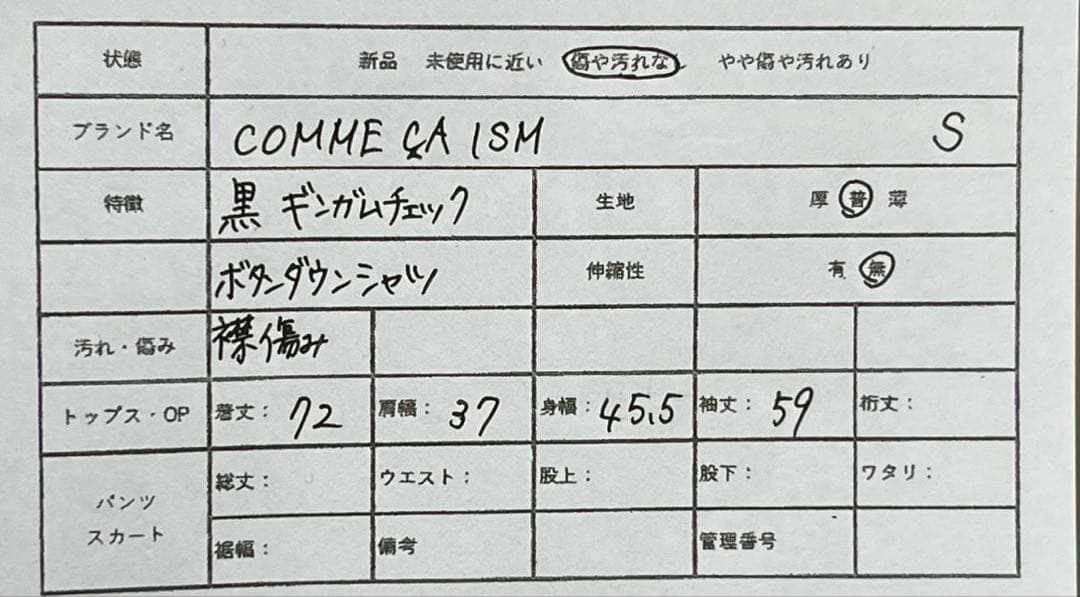 状態 新品 未使用に近い 傷や汚れなし やや傷や汚れあり
ブランド名 COMME ÇA ISM S
特徴 黒 ギンガムチェック 生地 厚 普 薄
ボタンダウンシャツ 伸縮性 有 無
汚れ・傷み 襟傷み
トップス・OP 着丈： 72 肩幅： 37 身幅： 45.5 袖丈： 59 裄丈：
パンツ
スカート
総丈： ウエスト： 股上： 股下： ワタリ：
裾幅： 備考 管理番号